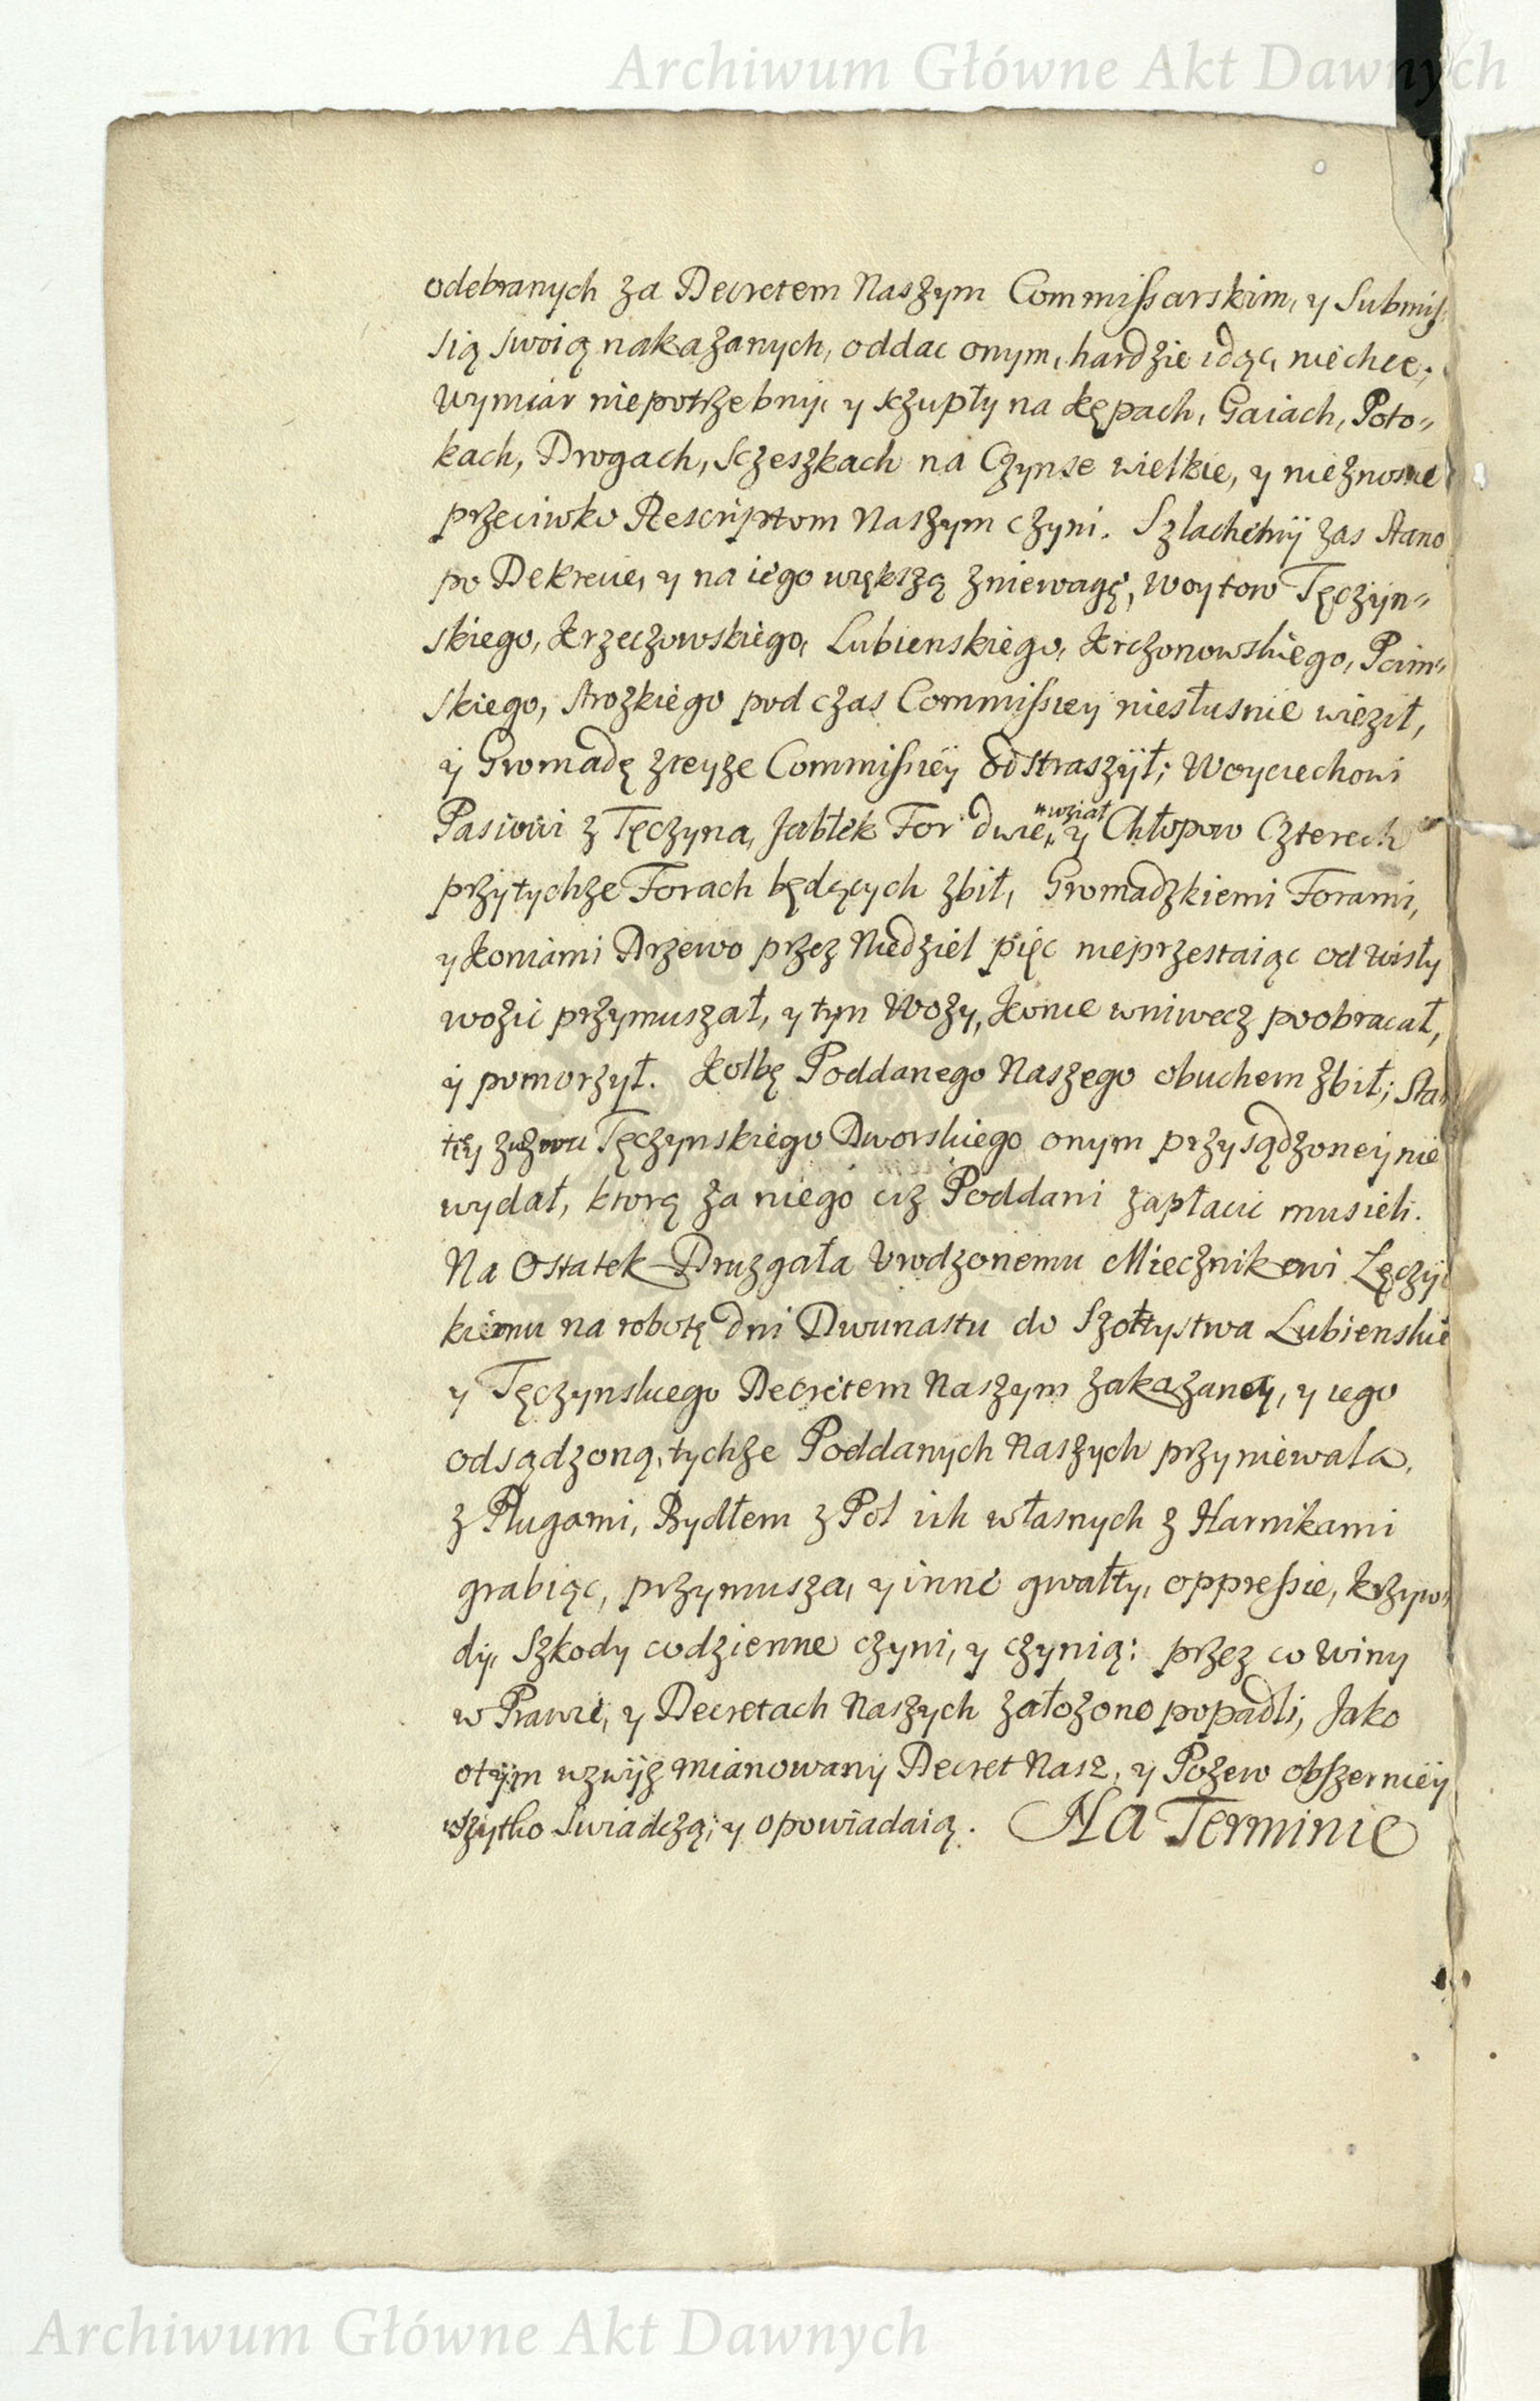 Archiwum Główne Akt Dawnych
odebranych za Decretem Naszym Commissarskim, y Submis
sią swoią nakazanych, oddac onym, hardzie idąc, niechce;
Wymiar niepotrzebny, y sczupły na Kępach, Gaiach, Poto„
kach, Drogach, Sczeszkach na Czynse wielkie, y nieznosne
przeciwko Rescriptom Naszym czyni. Szlachetny zas Stano
po Dekrecie, y na iego większą zniewagę, Woytow Tęczyn„
skiego, Krzeczowskiego, Lubienskiego, Krczonowskiego, Pcim„
skiego, Strozkiego podczas Commissiey niesłusnie wieził,
y Gromadę zteyze Commissiey odstraszył; Woyciechowi
Pasiowi z Tęczyna, Jabłek For dwie, „wziął y Chłopow Czterech
przytychze Forach będących zbił, Gromadzkiemi Forami,
y Koniami Drzewo przez Niedziel pięc nieprzestaiąc od Wisły
wozic przymuszał, y tym Wozy, Konie wniwecz poobracał,
y pomorzył. Kolbę Poddanego Naszego obuchem zbił; Sta
Tęczynskiego Dworskiego onym przysądzoney nie
wydał, ktorą za niego ciz Poddani zapłacic musieli.
Na Ostatek Druzgała Vrodzonemu Miecznikowi Łęczyc
kiemu na robotę dni Dwunastu do Szołtystwa Lubienskie
y Tęczynskiego Decretem Naszym zakazaney, y iego
odsądzoną, tychze Poddanych Naszych przyniewala,
z Pługami, Bydłem z Pol ich własnych z Harnikami
grabiąc, przymusza, y inne gwałty, oppressie, krzyw„
dy, Szkody codzienne czyni, y czynią: przez co Winy
w Prawie, y Decretach Naszych załozone popadli, Jako
otym wzwyz mianowany Decret Nasz, y Pozew obszerniey
wszytko swiadczą, y opowiadaią. Na Terminie
Archiwum Główne Akt Dawnych